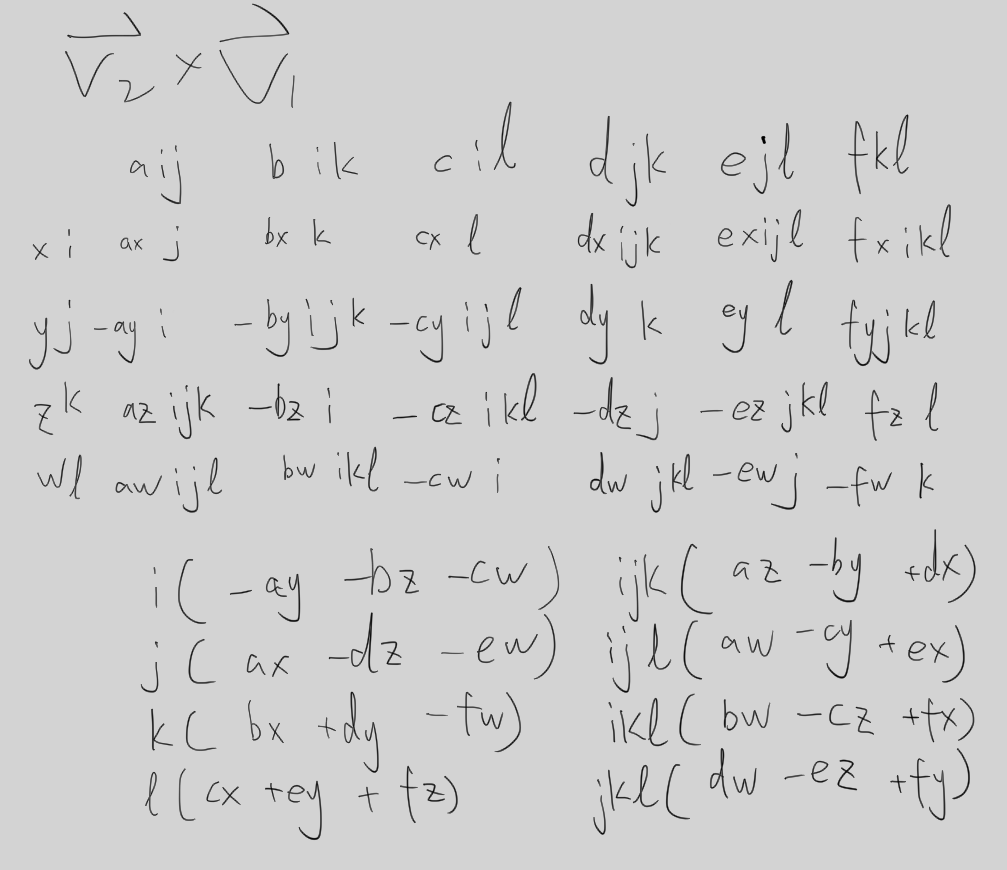 V₂ × V₁
aij b ik c il d jk ejl fkl
x i ax j bx k cx l dx ijk exijl fxikl
yj -ay i - by ijk -cy ijl dy k ey l fyjkl
zk az ijk -bz i - cz ikl -dz j - ez jkl fz l
wl aw ijl bw ikl -cw i dw jkl -ew j -fw k
i( - ay -bz -cw) ijk( az -by +dx)
j( ax -dz - ew) ijl( aw -cy +ex)
k( bx +dy -fw) ikl( bw -cz +fx)
l( cx +ey + fz) jkl( dw -ez +fy)